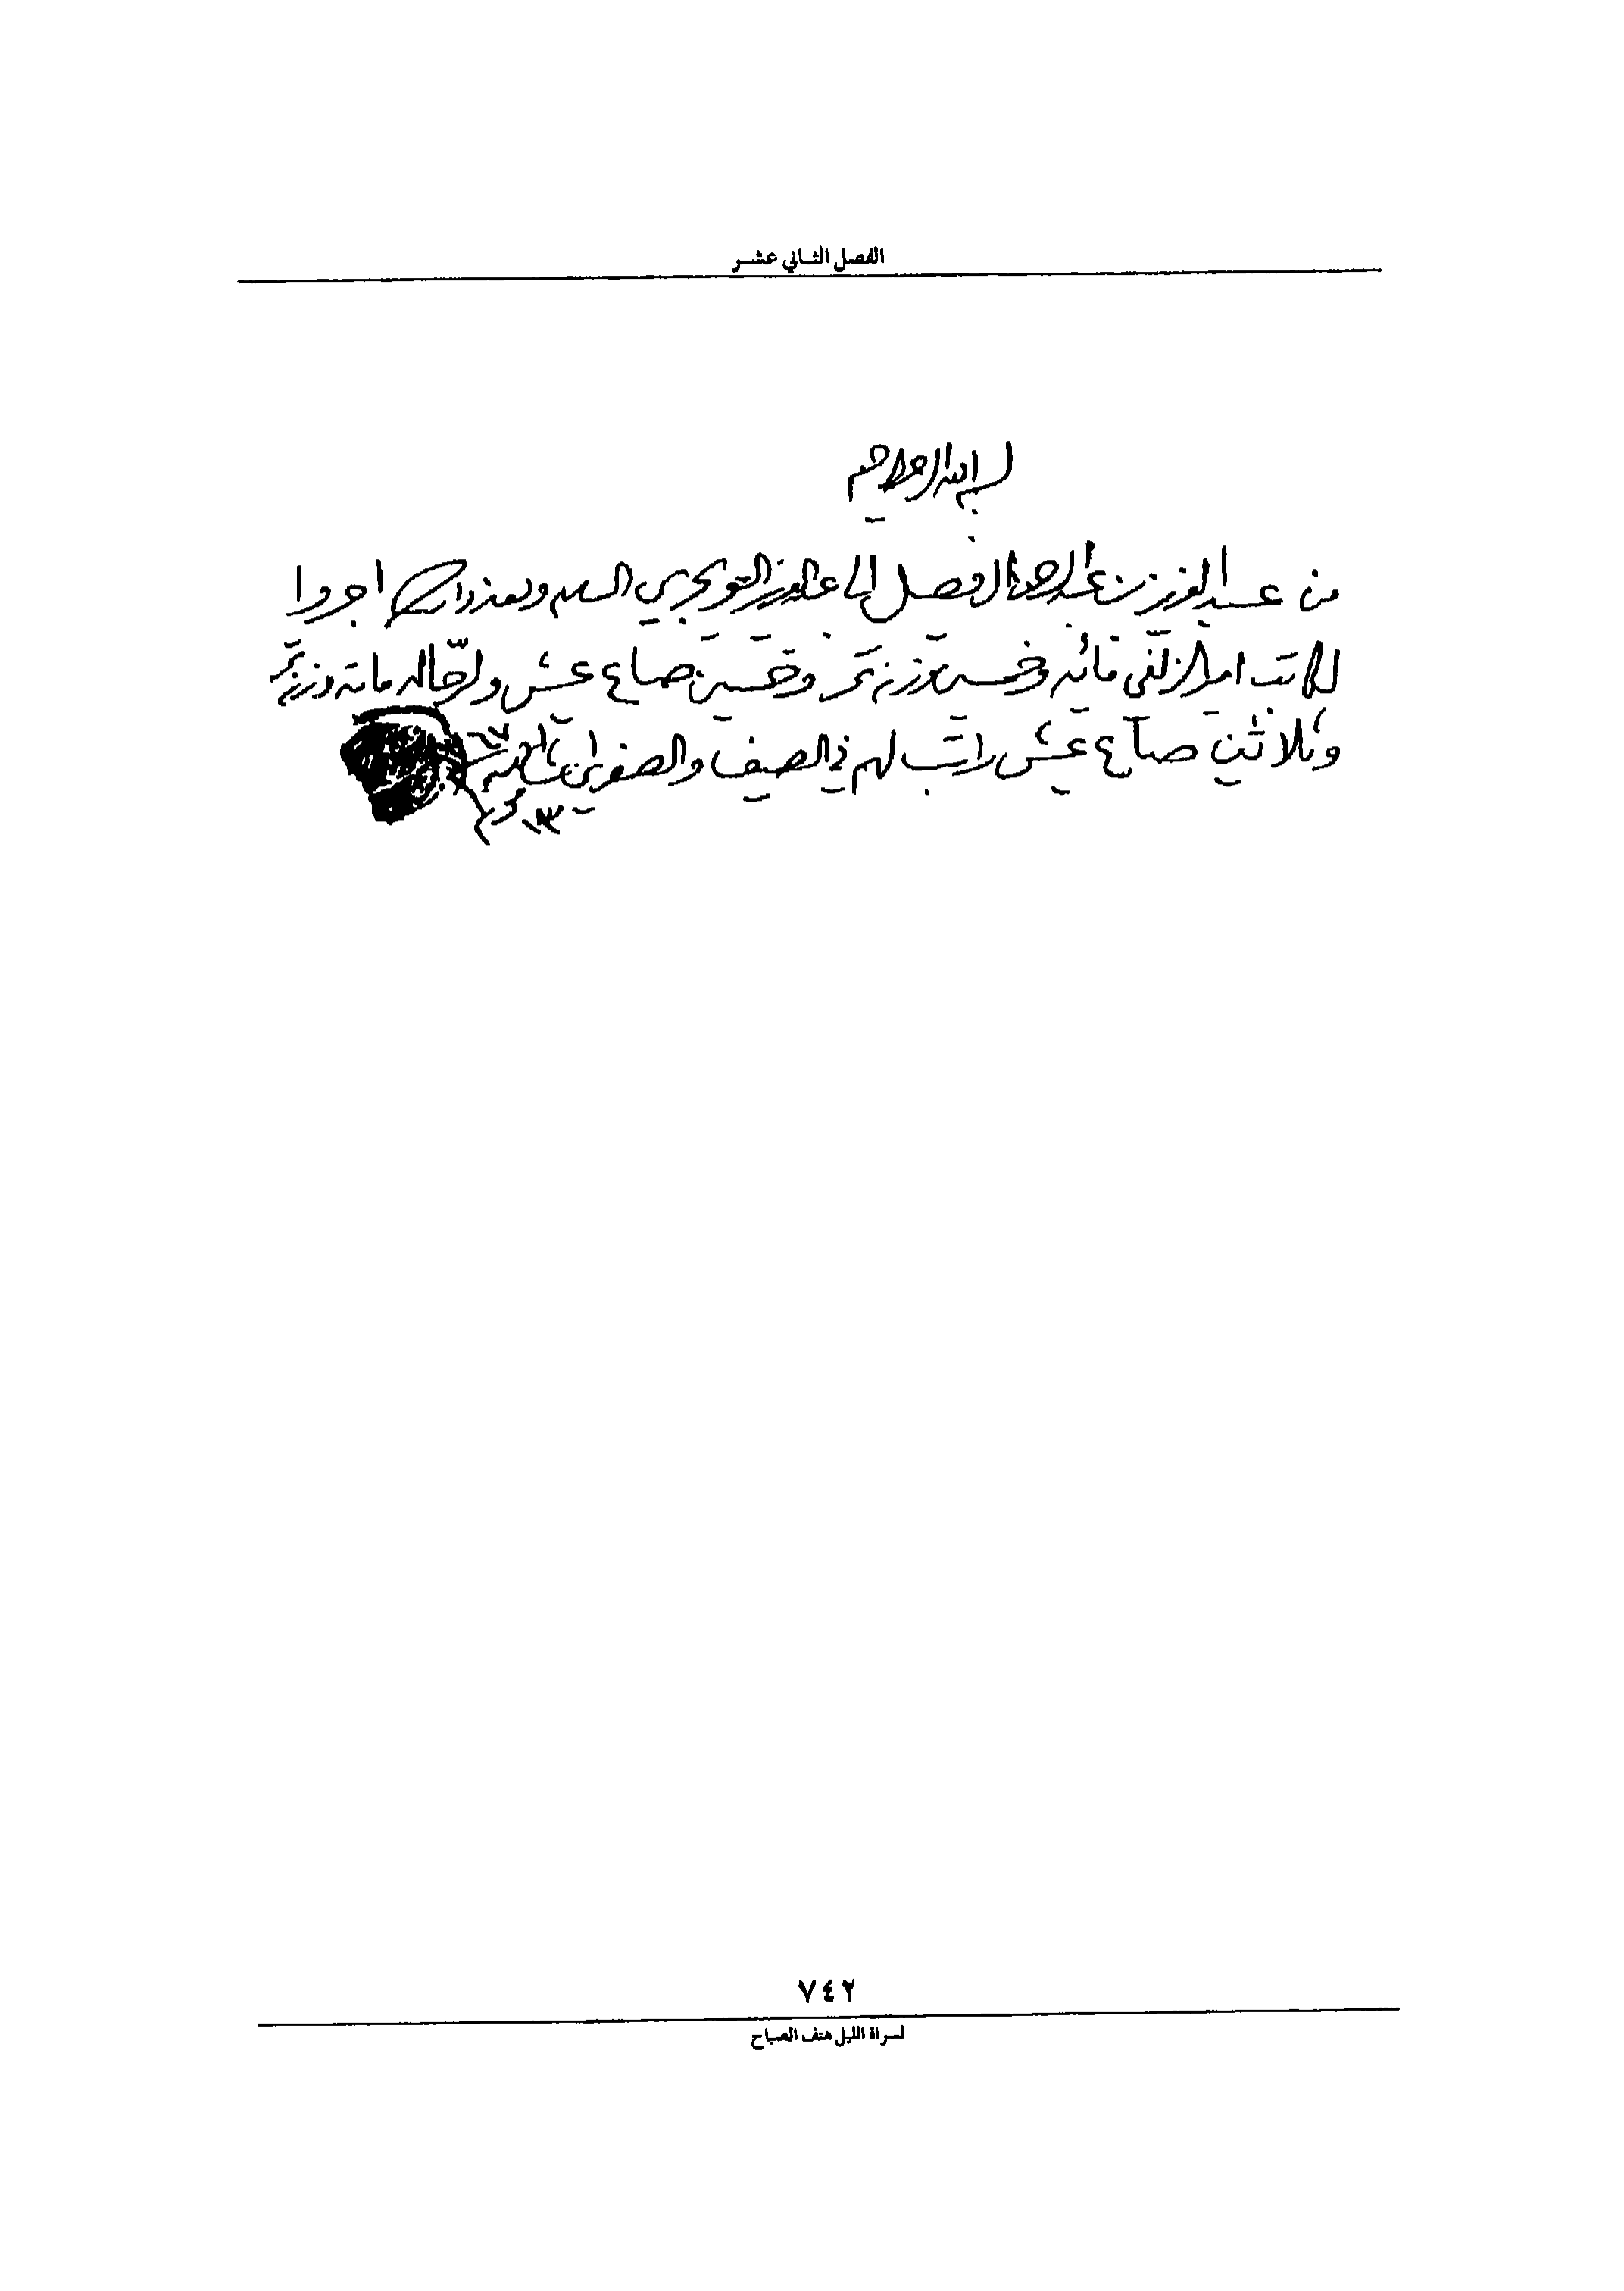 الفصل الثاني عشر
بسم الله الرحمن الرحيم
من عبد العزيز بن عبد الرحمن الفيصل إلى عبد العزيز التويجري السلام وبعد اجروا
لكاتب امير الزلفي مائه وخمسين وزنه تمر وخمسين صاع عيش ولرجاله مائة وزنة تمر
وثلاثين صاع عيش راتب لهم في الصيف والصفري
١٣ محرم
٧٤٢
لسراة الليل هتف الصباح